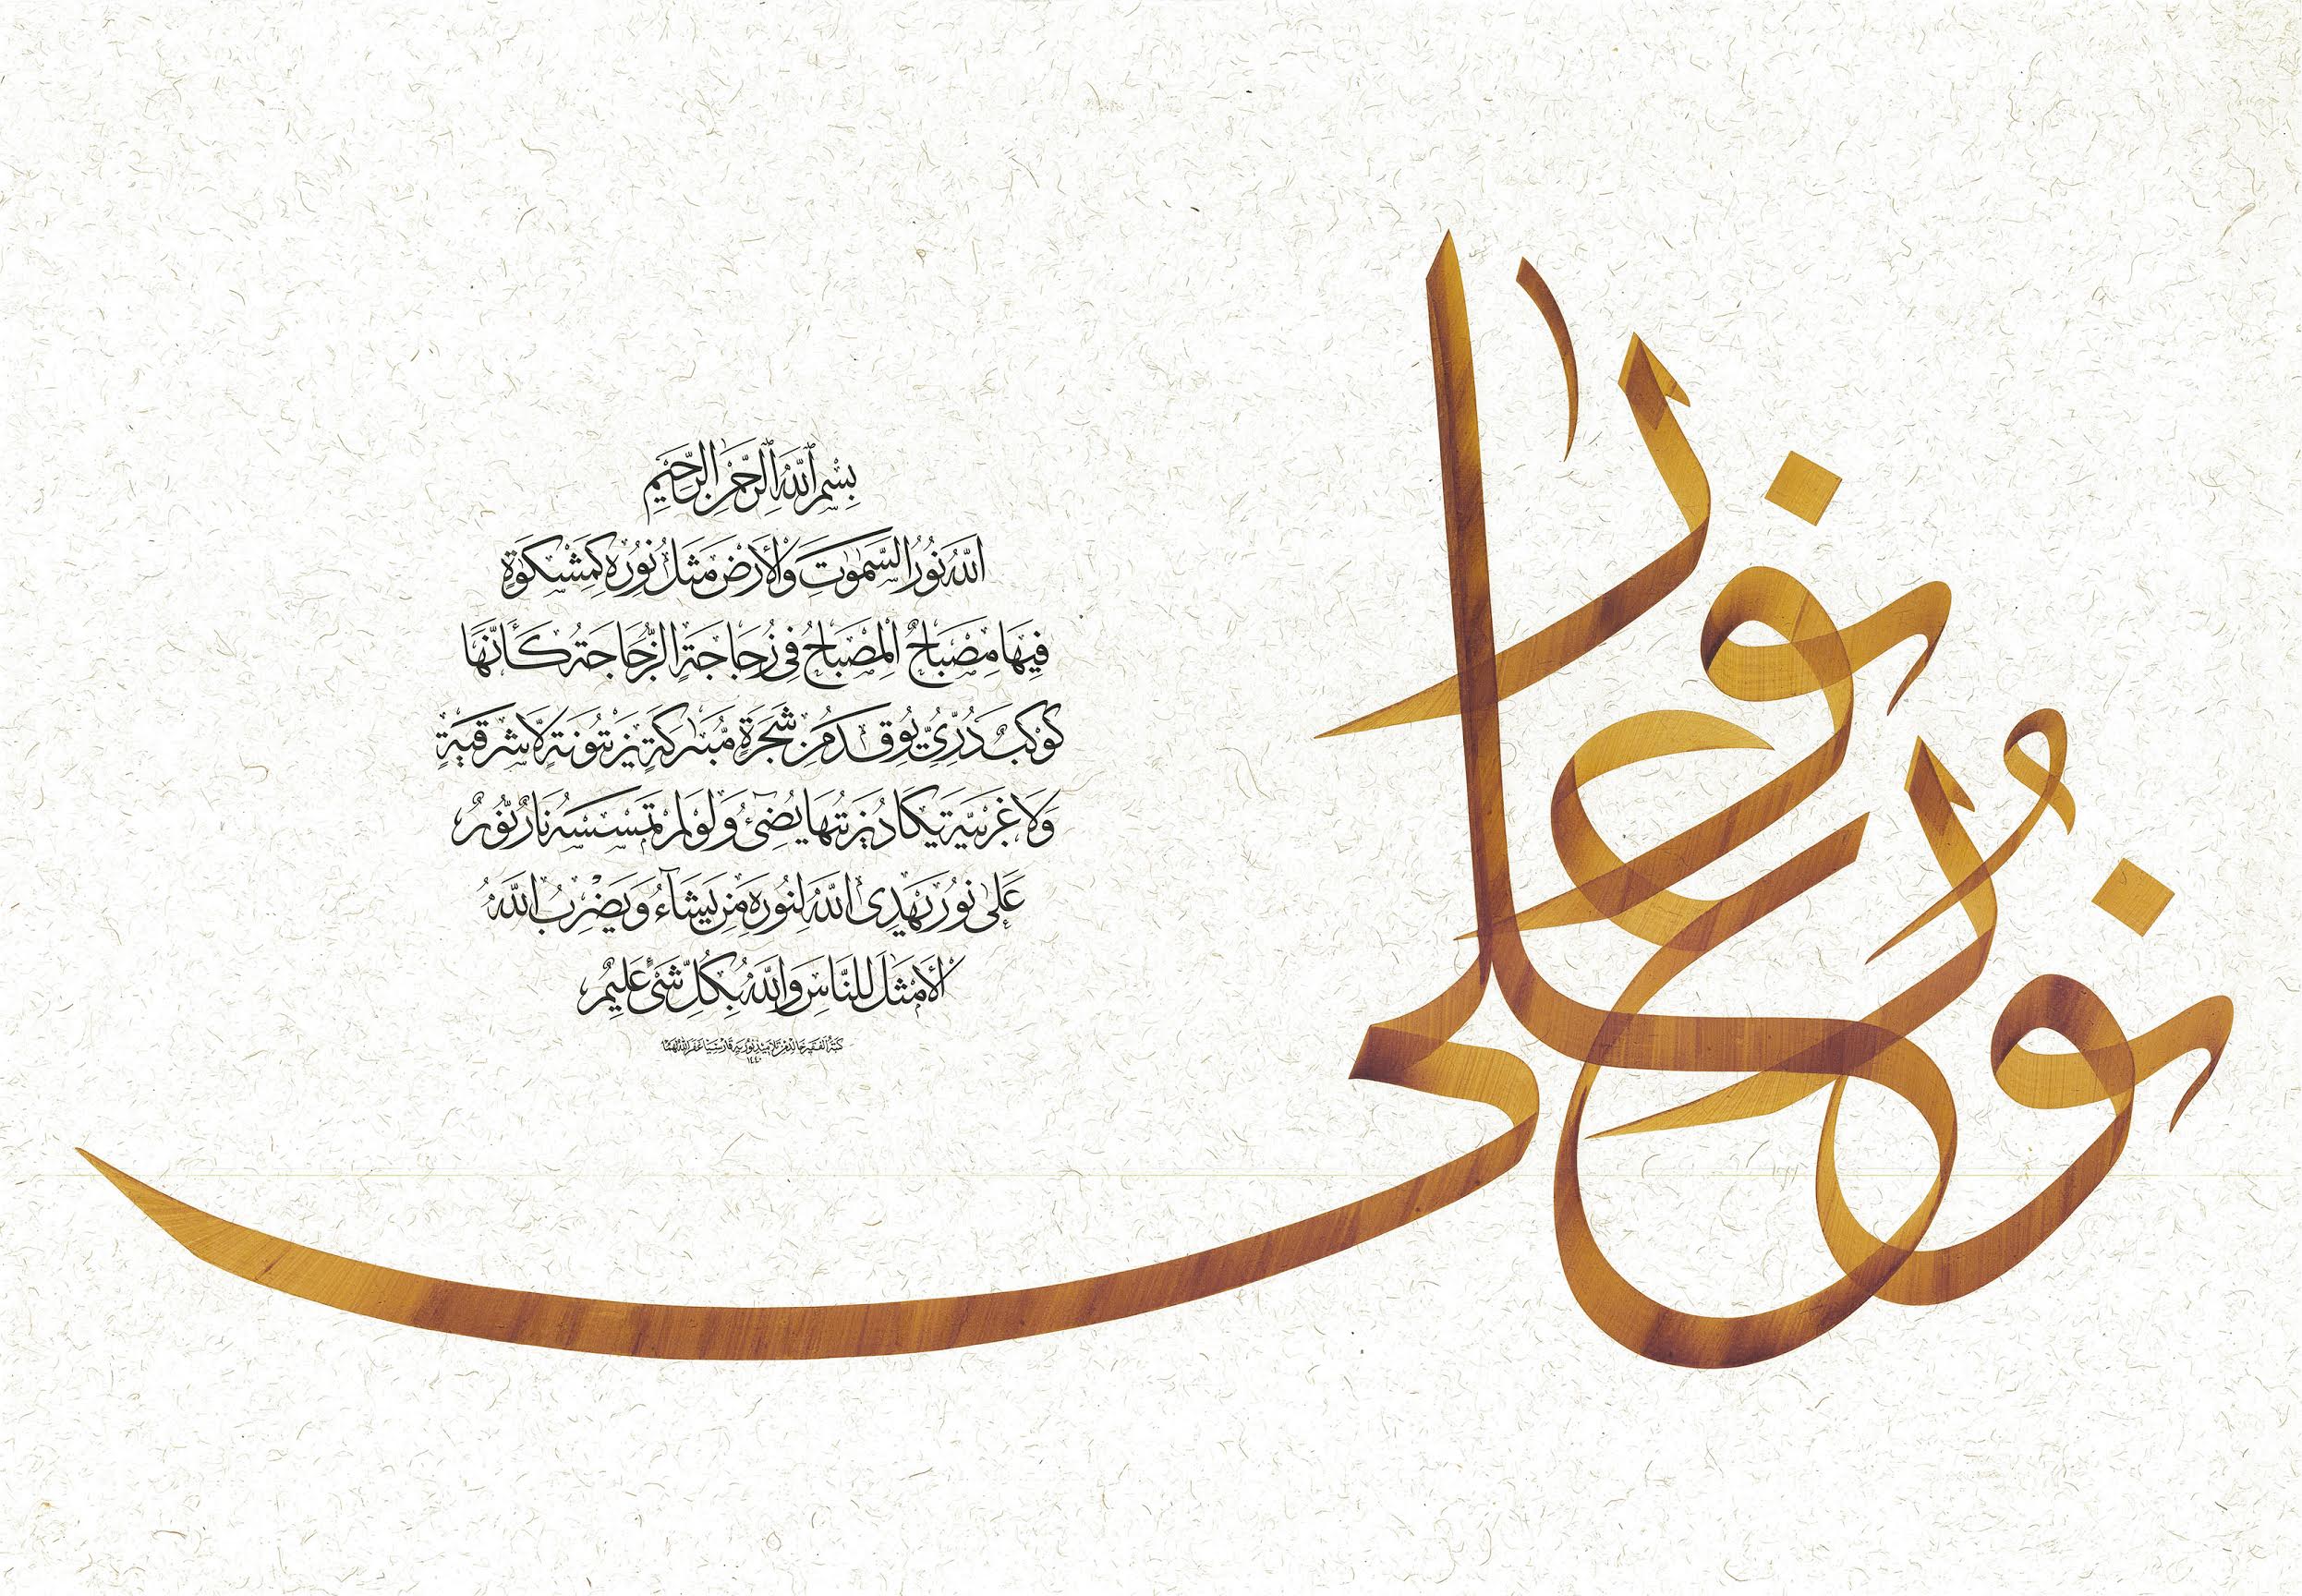 نور على نور
بِسْمِ اللهِ الرَّحْمٰنِ الرَّحِيْمِ
اَللّٰهُ نُوْرُ السَّمٰوٰتِ وَالْاَرْضِ مَثَلُ نُوْرِهٖ كَمِشْكٰوةٍ
فِيْهَا مِصْبَاحٌ اَلْمِصْبَاحُ فِيْ زُجَاجَةٍ اَلزُّجَاجَةُ كَاَنَّهَا
كَوْكَبٌ دُرِّيٌّ يُوْقَدُ مِنْ شَجَرَةٍ مُبٰرَكَةٍ زَيْتُوْنَةٍ لَا شَرْقِيَّةٍ
وَلَا غَرْبِيَّةٍ يَكَادُ زَيْتُهَا يُضِيْٓءُ وَلَوْ لَمْ تَمْسَسْهُ نَارٌ نُوْرٌ
عَلٰى نُوْرٍ يَهْدِى اللّٰهُ لِنُوْرِهٖ مَنْ يَشَآءُ وَيَضْرِبُ اللّٰهُ
الْاَمْثَالَ لِلنَّاسِ وَاللّٰهُ بِكُلِّ شَيْءٍ عَلِيْمٌ
١٤٤٠